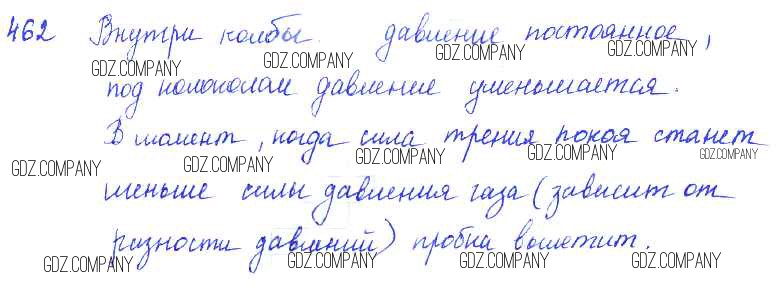 462 Внутри колбы давление постоянное,
GDZ.COMPANY GDZ.COMPANY GDZ.COMPANY
под колоколом давление уменьшается.
GDZ.COMPANY GDZ.COMPANY
В момент, когда сила трения покоя станет
GDZ.COMPANY GDZ.COMPANY GDZ.COMPANY GDZ.COMPANY GDZ.COMPANY
меньше силы давления газа (зависит от
разности давлений) пробка вылетит.
GDZ.COMPANY GDZ.COMPANY GDZ.COMPANY GDZ.COMPANY